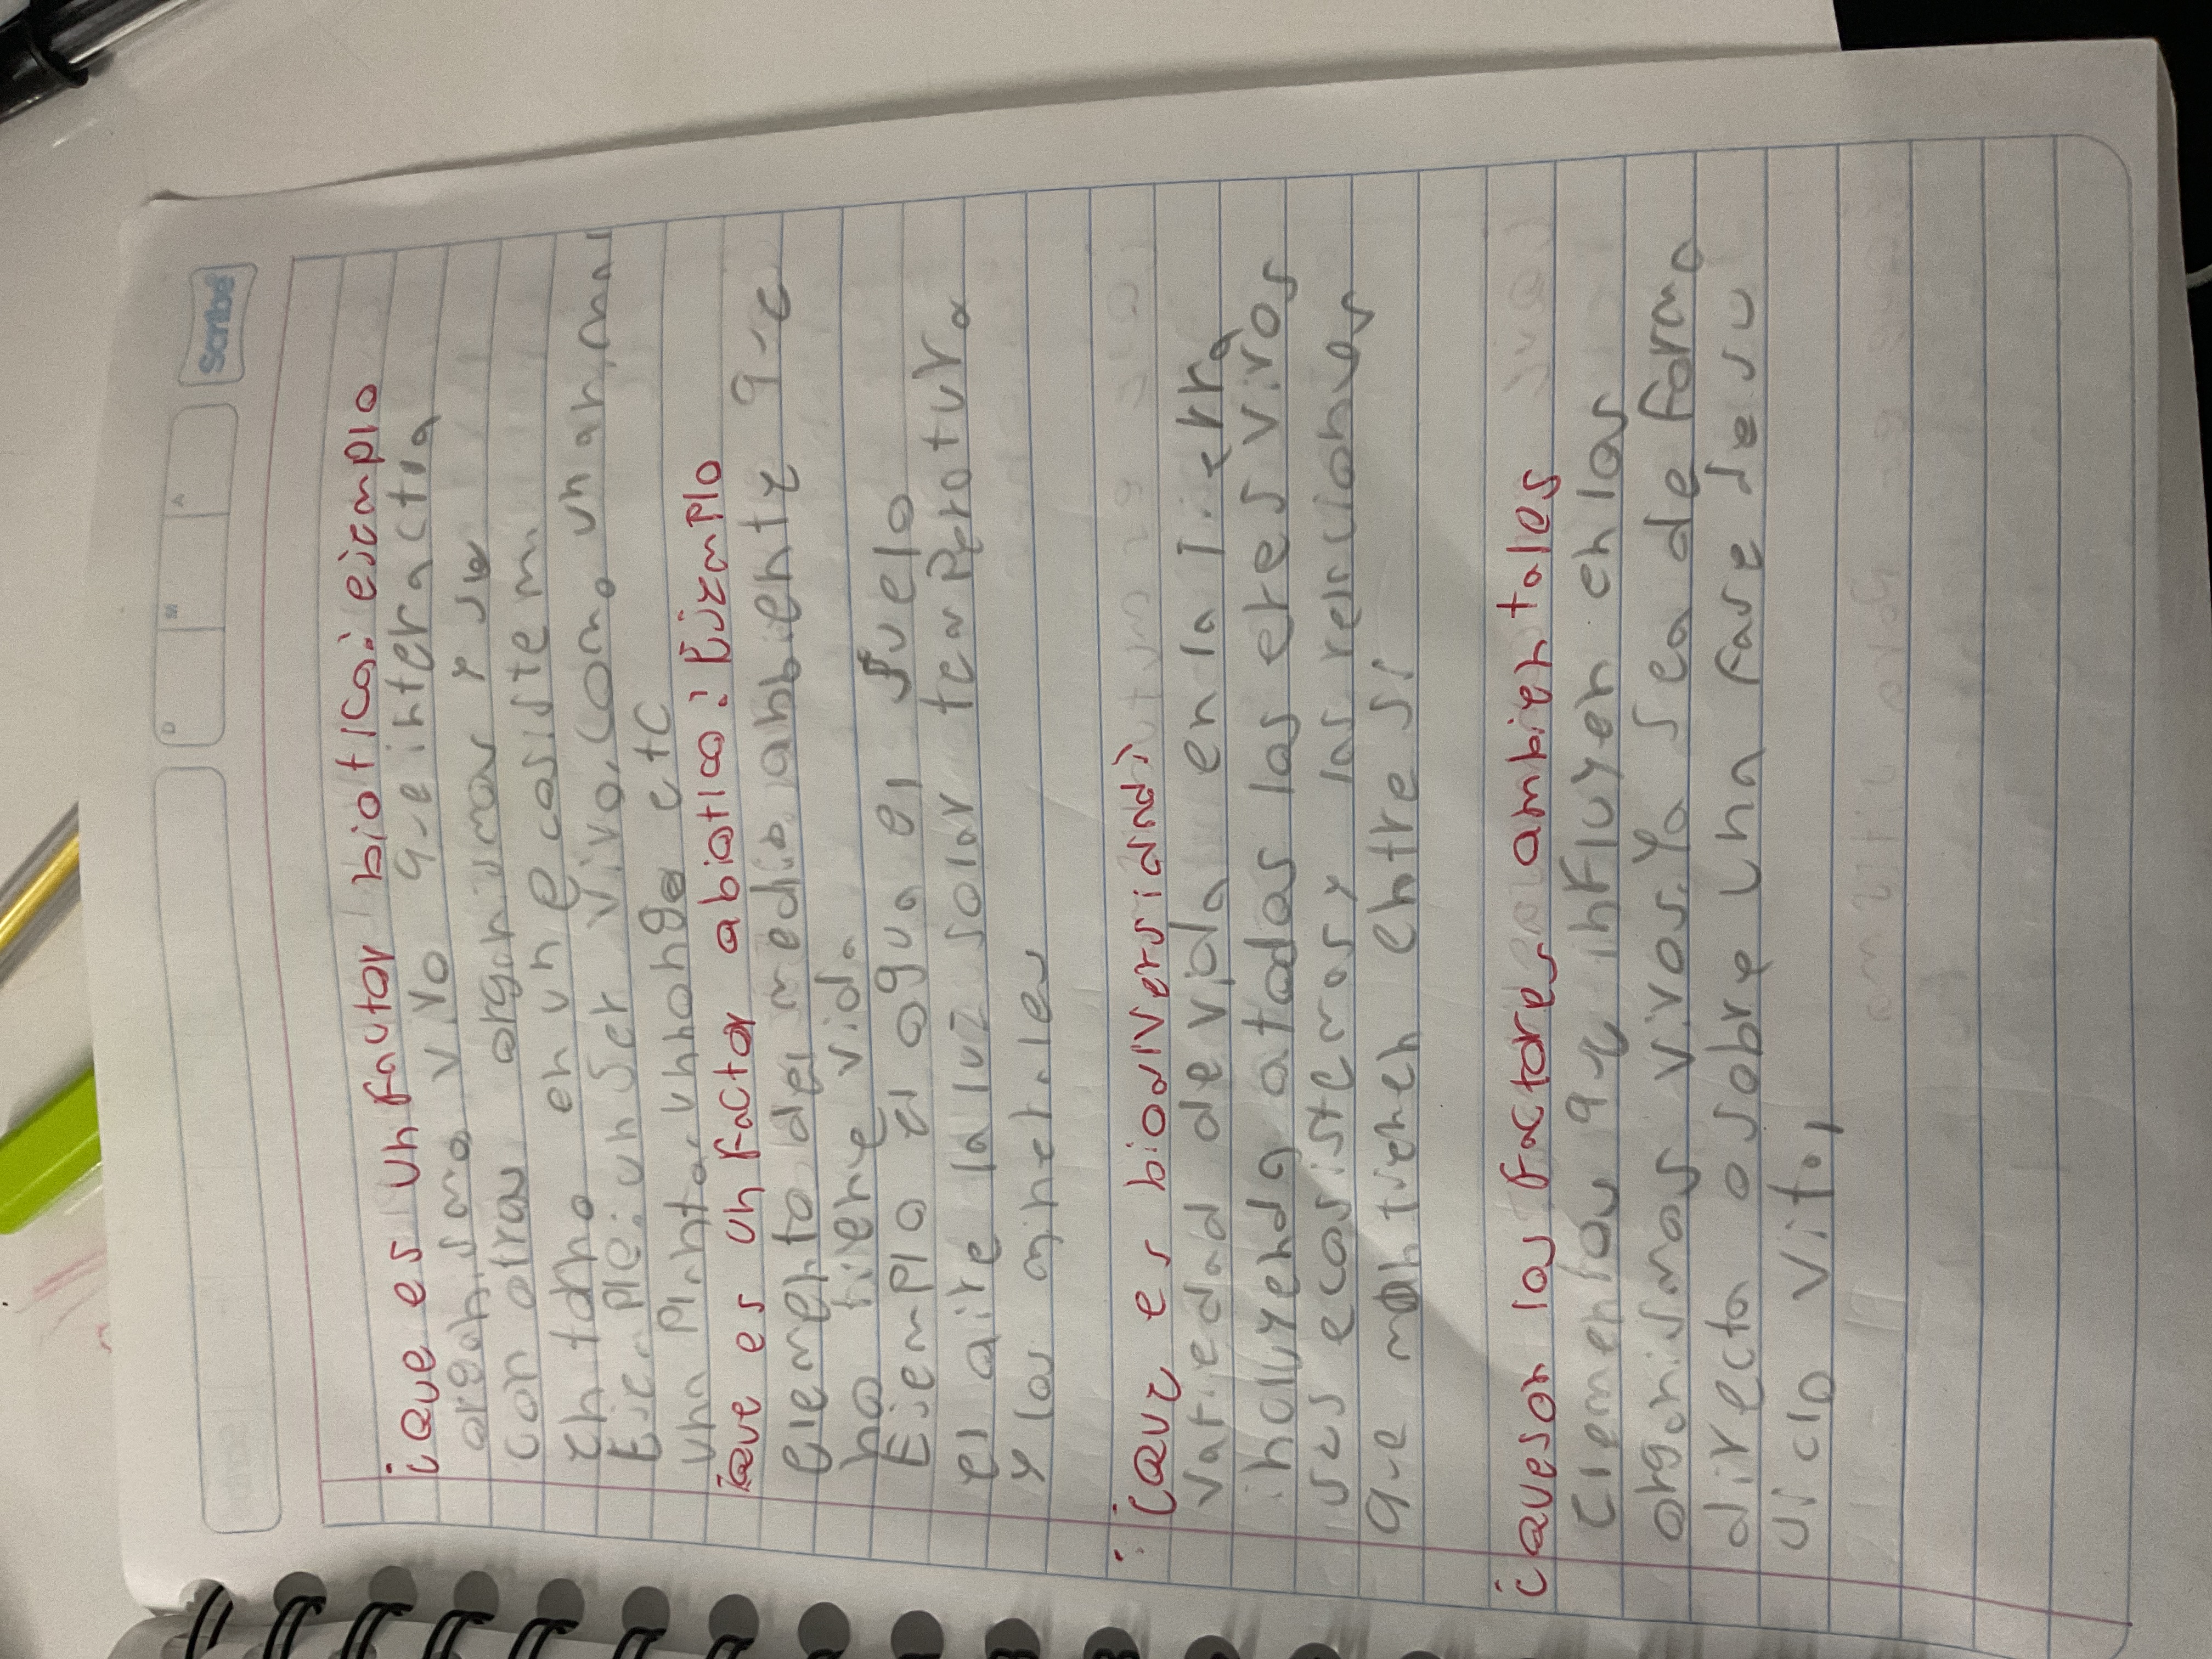 Scribe
D M A
¿Que es un factor biotico: ejemplo
organismo vivo que interactia
con otros organismos y su
entorno en un ecosistem
Ejemplo: un ser vivo, como un animal
una planta, un hongo etc
¿Que es un factor abiotico: Ejemplo
elemento del medio ambiente que
no tiene vida
Ejemplo el agua el suelo
el aire la luz solar temperatura
y los minerales
¿Que es biodiversidad)
variedad de vida en la Tierra
incluyendo a todos los seres vivos
sus ecosistemas y las relaciones
que mantienen entre si
¿Que son los factores ambientales
elementos que influyen en los
organismos vivos. Ya sea de forma
directa o sobre una fase de su
ciclo vital